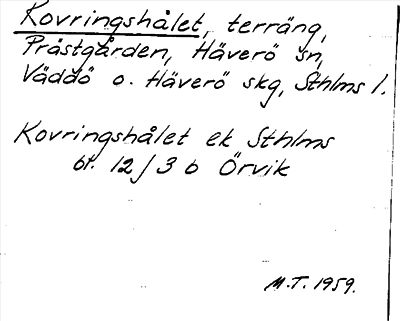 Kovringshålet, terräng,
Prästgården, Häverö sn,
Väddö o. Häverö skg, Sthlms l.
Kovringshålet ek Sthlms
bl. 12/3 b Örvik
M.T. 1959.